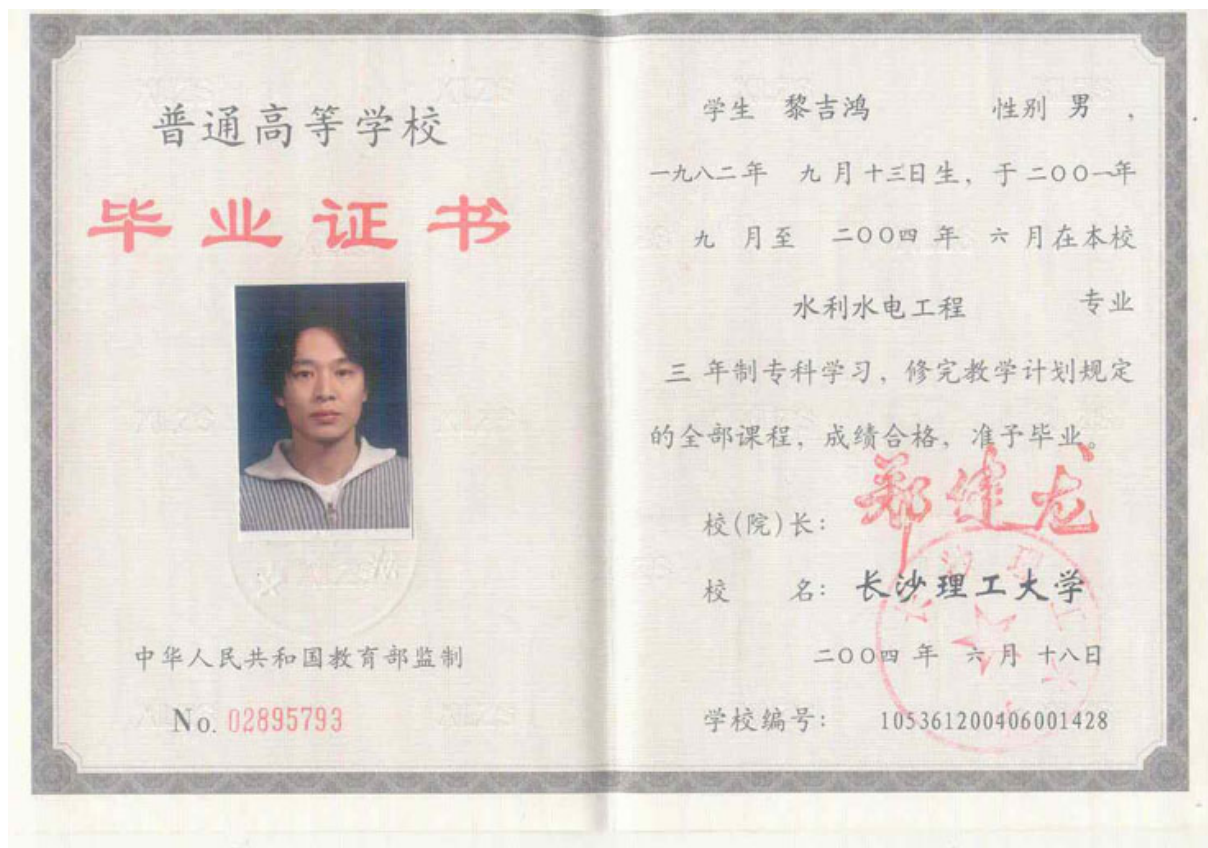 普通高等学校
毕业证书
中华人民共和国教育部监制
No. 02895793
学生 黎吉鸿 性别 男 ,
一九八二年 九月十三日生, 于二00一年
九 月至 二00四年 六 月在本校
水利水电工程 专业
三 年制专科学习, 修完教学计划规定
的全部课程, 成绩合格, 准予毕业。
校(院)长: 郑健龙
校 名: 长沙理工大学
二00四 年 六 月 十八日
学校编号: 105361200406001428